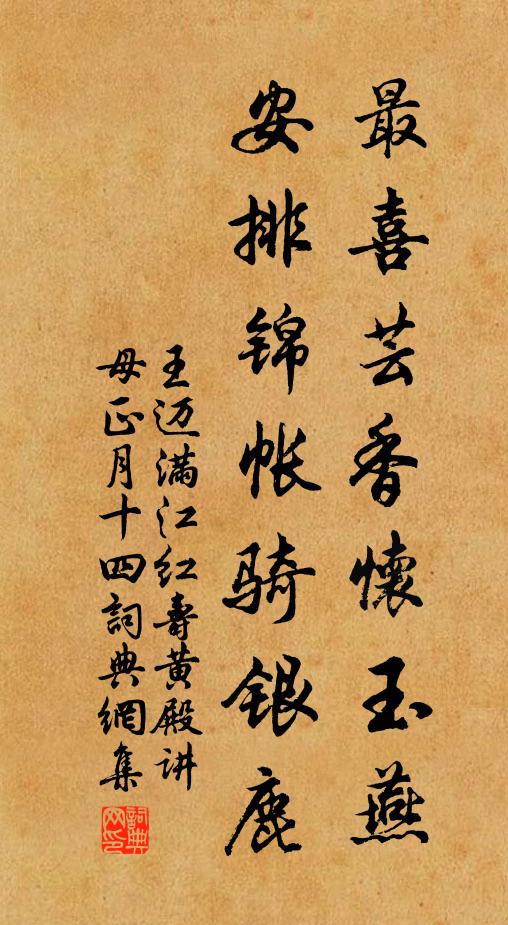 最喜芸香懷玉燕
安排锦帐骑银鹿
王迈满江红壽黄殿讲
母正月十四詞典網集
詞典
网印